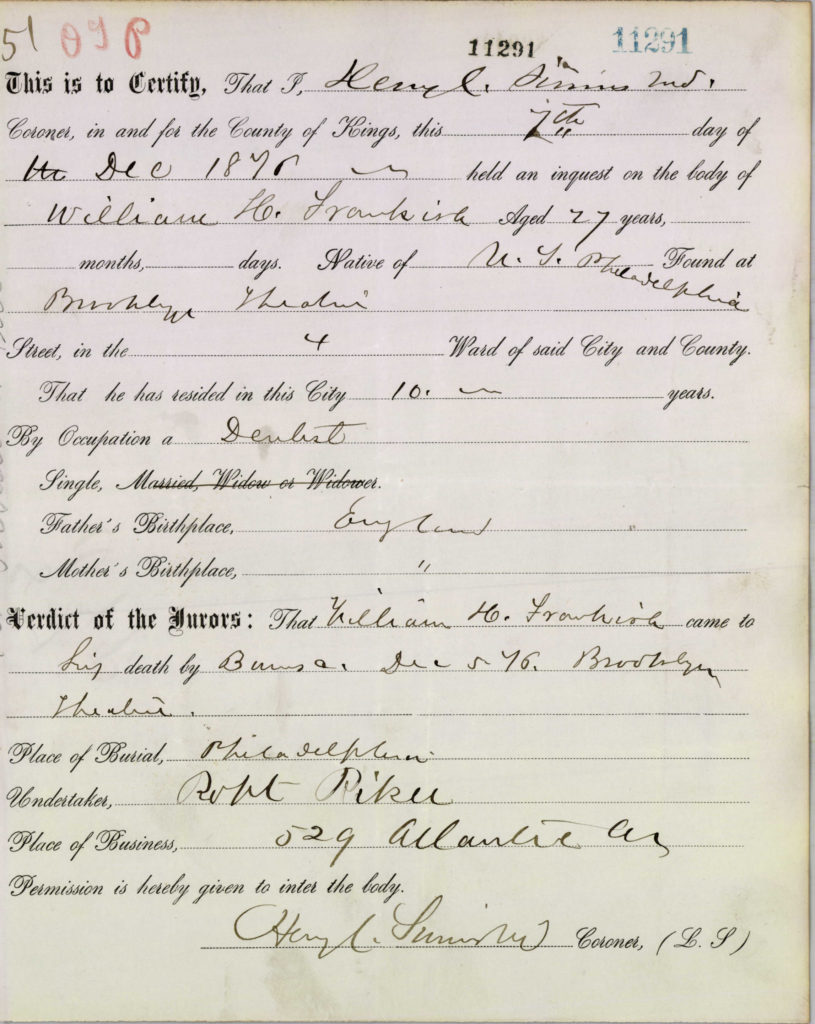 51 OJP 11291 11291
This is to Certify, That I, Henry C. Simms M.D.
Coroner, in and for the County of Kings, this 7th day of
Dec 1876 held an inquest on the body of
William H. Frankish Aged 27 years,
months, days. Native of U. S. Philadelphia Found at
Brooklyn Theatre
Street, in the 4 Ward of said City and County.
That he has resided in this City 10. years.
By Occupation a Dentist
Single, Married, Widow or Widower.
Father's Birthplace, England
Mother's Birthplace, "
Verdict of the Jurors: That William H. Frankish came to
his death by Burns &c. Dec 5 76. Brooklyn
Theatre.
Place of Burial, Philadelphia
Undertaker, Robt Riker
Place of Business, 529 Atlantic Av
Permission is hereby given to inter the body.
Henry C. Simms MD Coroner, (L. S)